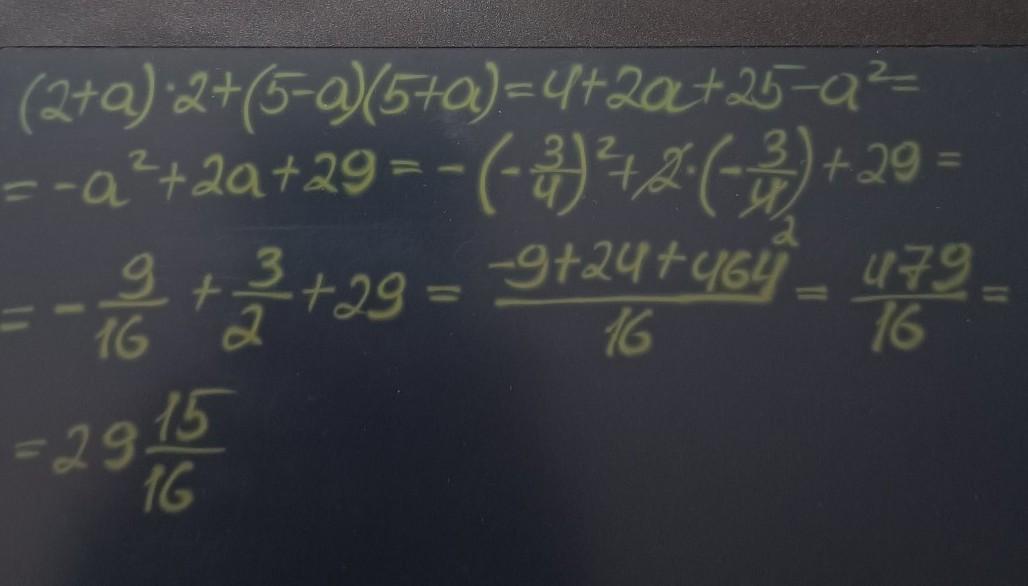 (2+a)·2+(5-a)(5+a)=4+2a+25-a²=
=-a²+2a+29=-(-3/4)²+2·(-3/4)+29=
2
=-9/16+3/2+29=(-9+24+464)/16=479/16=
=29 15/16